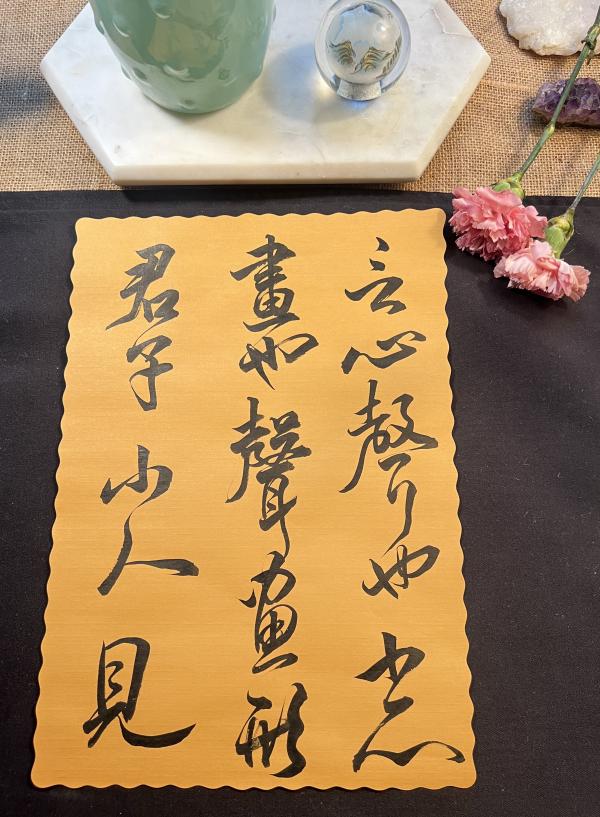 言心聲也書心
畫也聲畫形
君子小人見